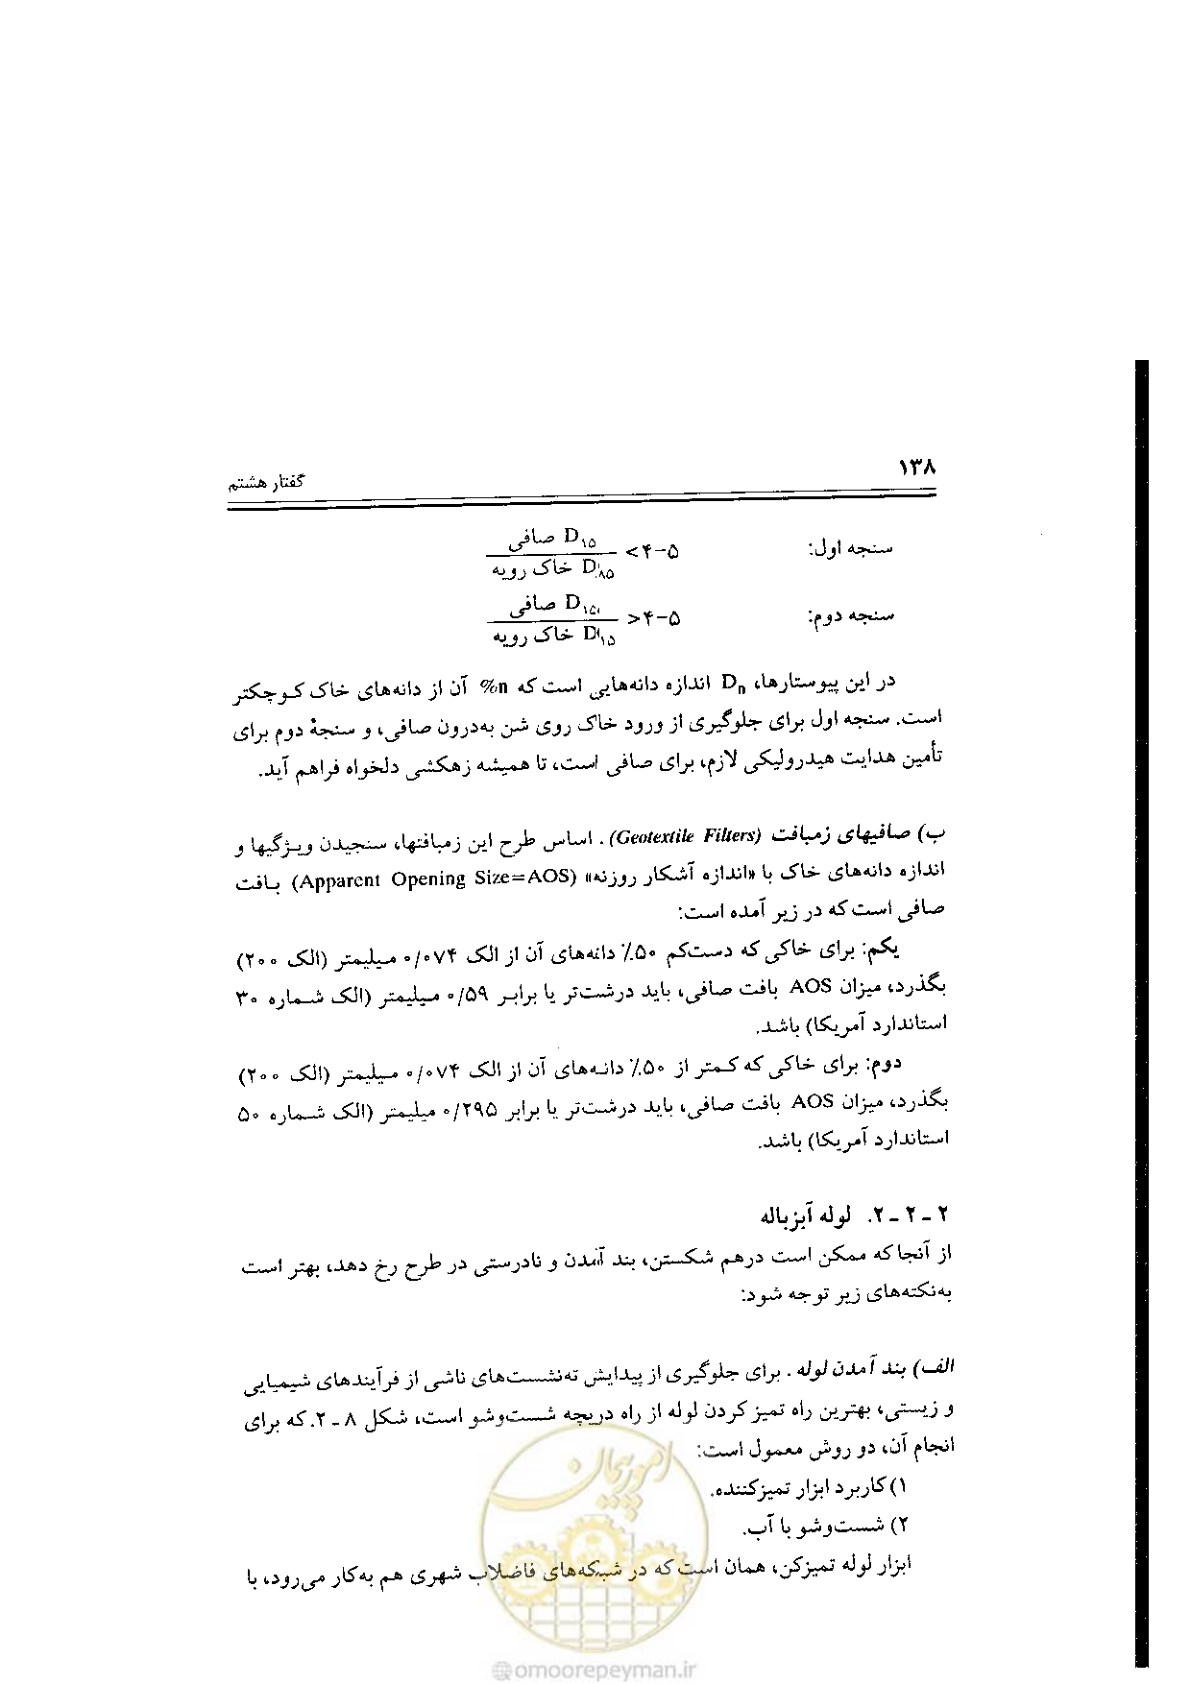 ۱۳۸
گفتار هشتم
سنجه اول: D۱۵ صافی / D۸۵ خاک رویه < ۴-۵
سنجه دوم: D۱۵ صافی / D۱۵ خاک رویه > ۴-۵
در این پیوستارها، Dn اندازه دانه‌هایی است که n% آن از دانه‌های خاک کوچکتر
است. سنجه اول برای جلوگیری از ورود خاک روی شن به‌درون صافی، و سنجهٔ دوم برای
تأمین هدایت هیدرولیکی لازم، برای صافی است، تا همیشه زهکشی دلخواه فراهم آید.
ب) صافیهای زمبافت (Geotextile Filters). اساس طرح این زمبافتها، سنجیدن ویژگیها و
اندازه دانه‌های خاک با «اندازه آشکار روزنه» (Apparent Opening Size=AOS) بافت
صافی است که در زیر آمده است:
یکم: برای خاکی که دست‌کم ۵۰٪ دانه‌های آن از الک ۰/۰۷۴ میلیمتر (الک ۲۰۰)
بگذرد، میزان AOS بافت صافی، باید درشت‌تر یا برابر ۰/۵۹ میلیمتر (الک شماره ۳۰
استاندارد آمریکا) باشد.
دوم: برای خاکی که کمتر از ۵۰٪ دانه‌های آن از الک ۰/۰۷۴ میلیمتر (الک ۲۰۰)
بگذرد، میزان AOS بافت صافی، باید درشت‌تر یا برابر ۰/۲۹۵ میلیمتر (الک شماره ۵۰
استاندارد آمریکا) باشد.
۲ ـ ۲ ـ ۲. لوله آبزباله
از آنجا که ممکن است درهم شکستن، بند آمدن و نادرستی در طرح رخ دهد، بهتر است
به‌نکته‌های زیر توجه شود:
الف) بند آمدن لوله. برای جلوگیری از پیدایش ته‌نشست‌های ناشی از فرآیندهای شیمیایی
و زیستی، بهترین راه تمیز کردن لوله از راه دریچه شست‌وشو است، شکل ۸ ـ ۲. که برای
انجام آن، دو روش معمول است:
۱) کاربرد ابزار تمیزکننده.
۲) شست‌وشو با آب.
ابزار لوله تمیزکن، همان است که در شبکه‌های فاضلاب شهری هم به‌کار می‌رود، با
امور پیمان
@omoorepeyman.ir